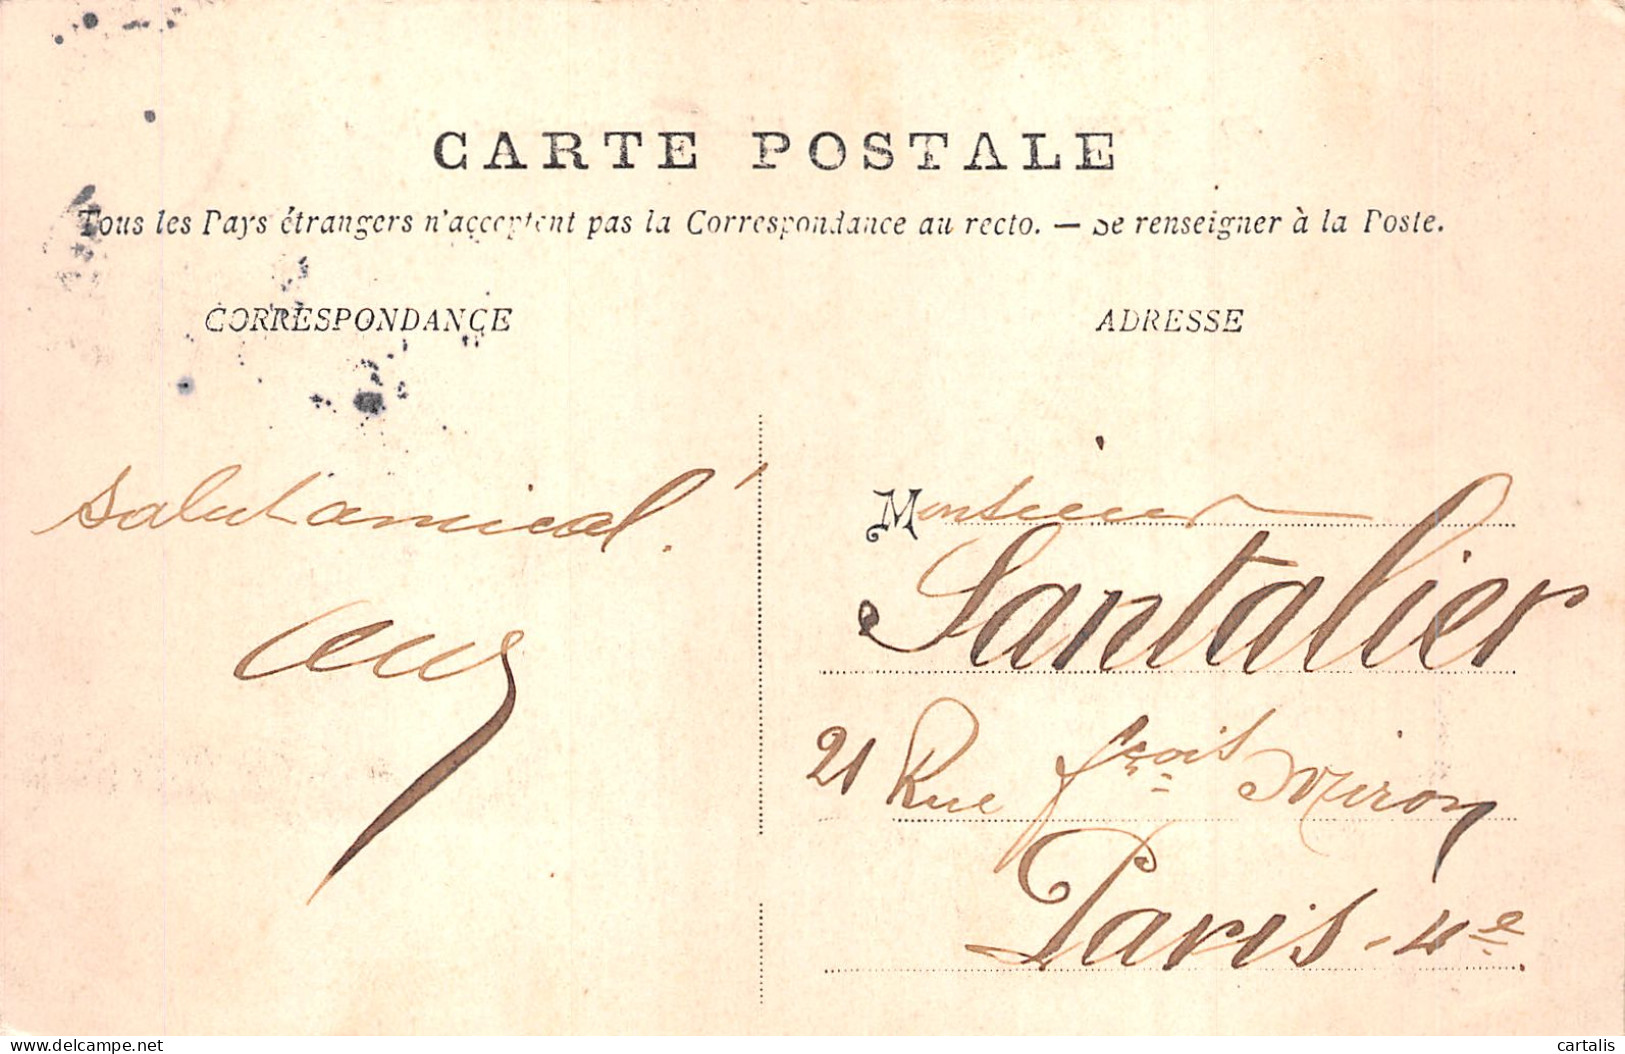 CARTE POSTALE
Tous les Pays étrangers n'acceptent pas la Correspondance au recto. — Se renseigner à la Poste.
CORRESPONDANCE
ADRESSE
Salut amical!
Monsieur
Santalier
21 Rue frois Miron
Paris. 4e
delcampe.net
cartalis